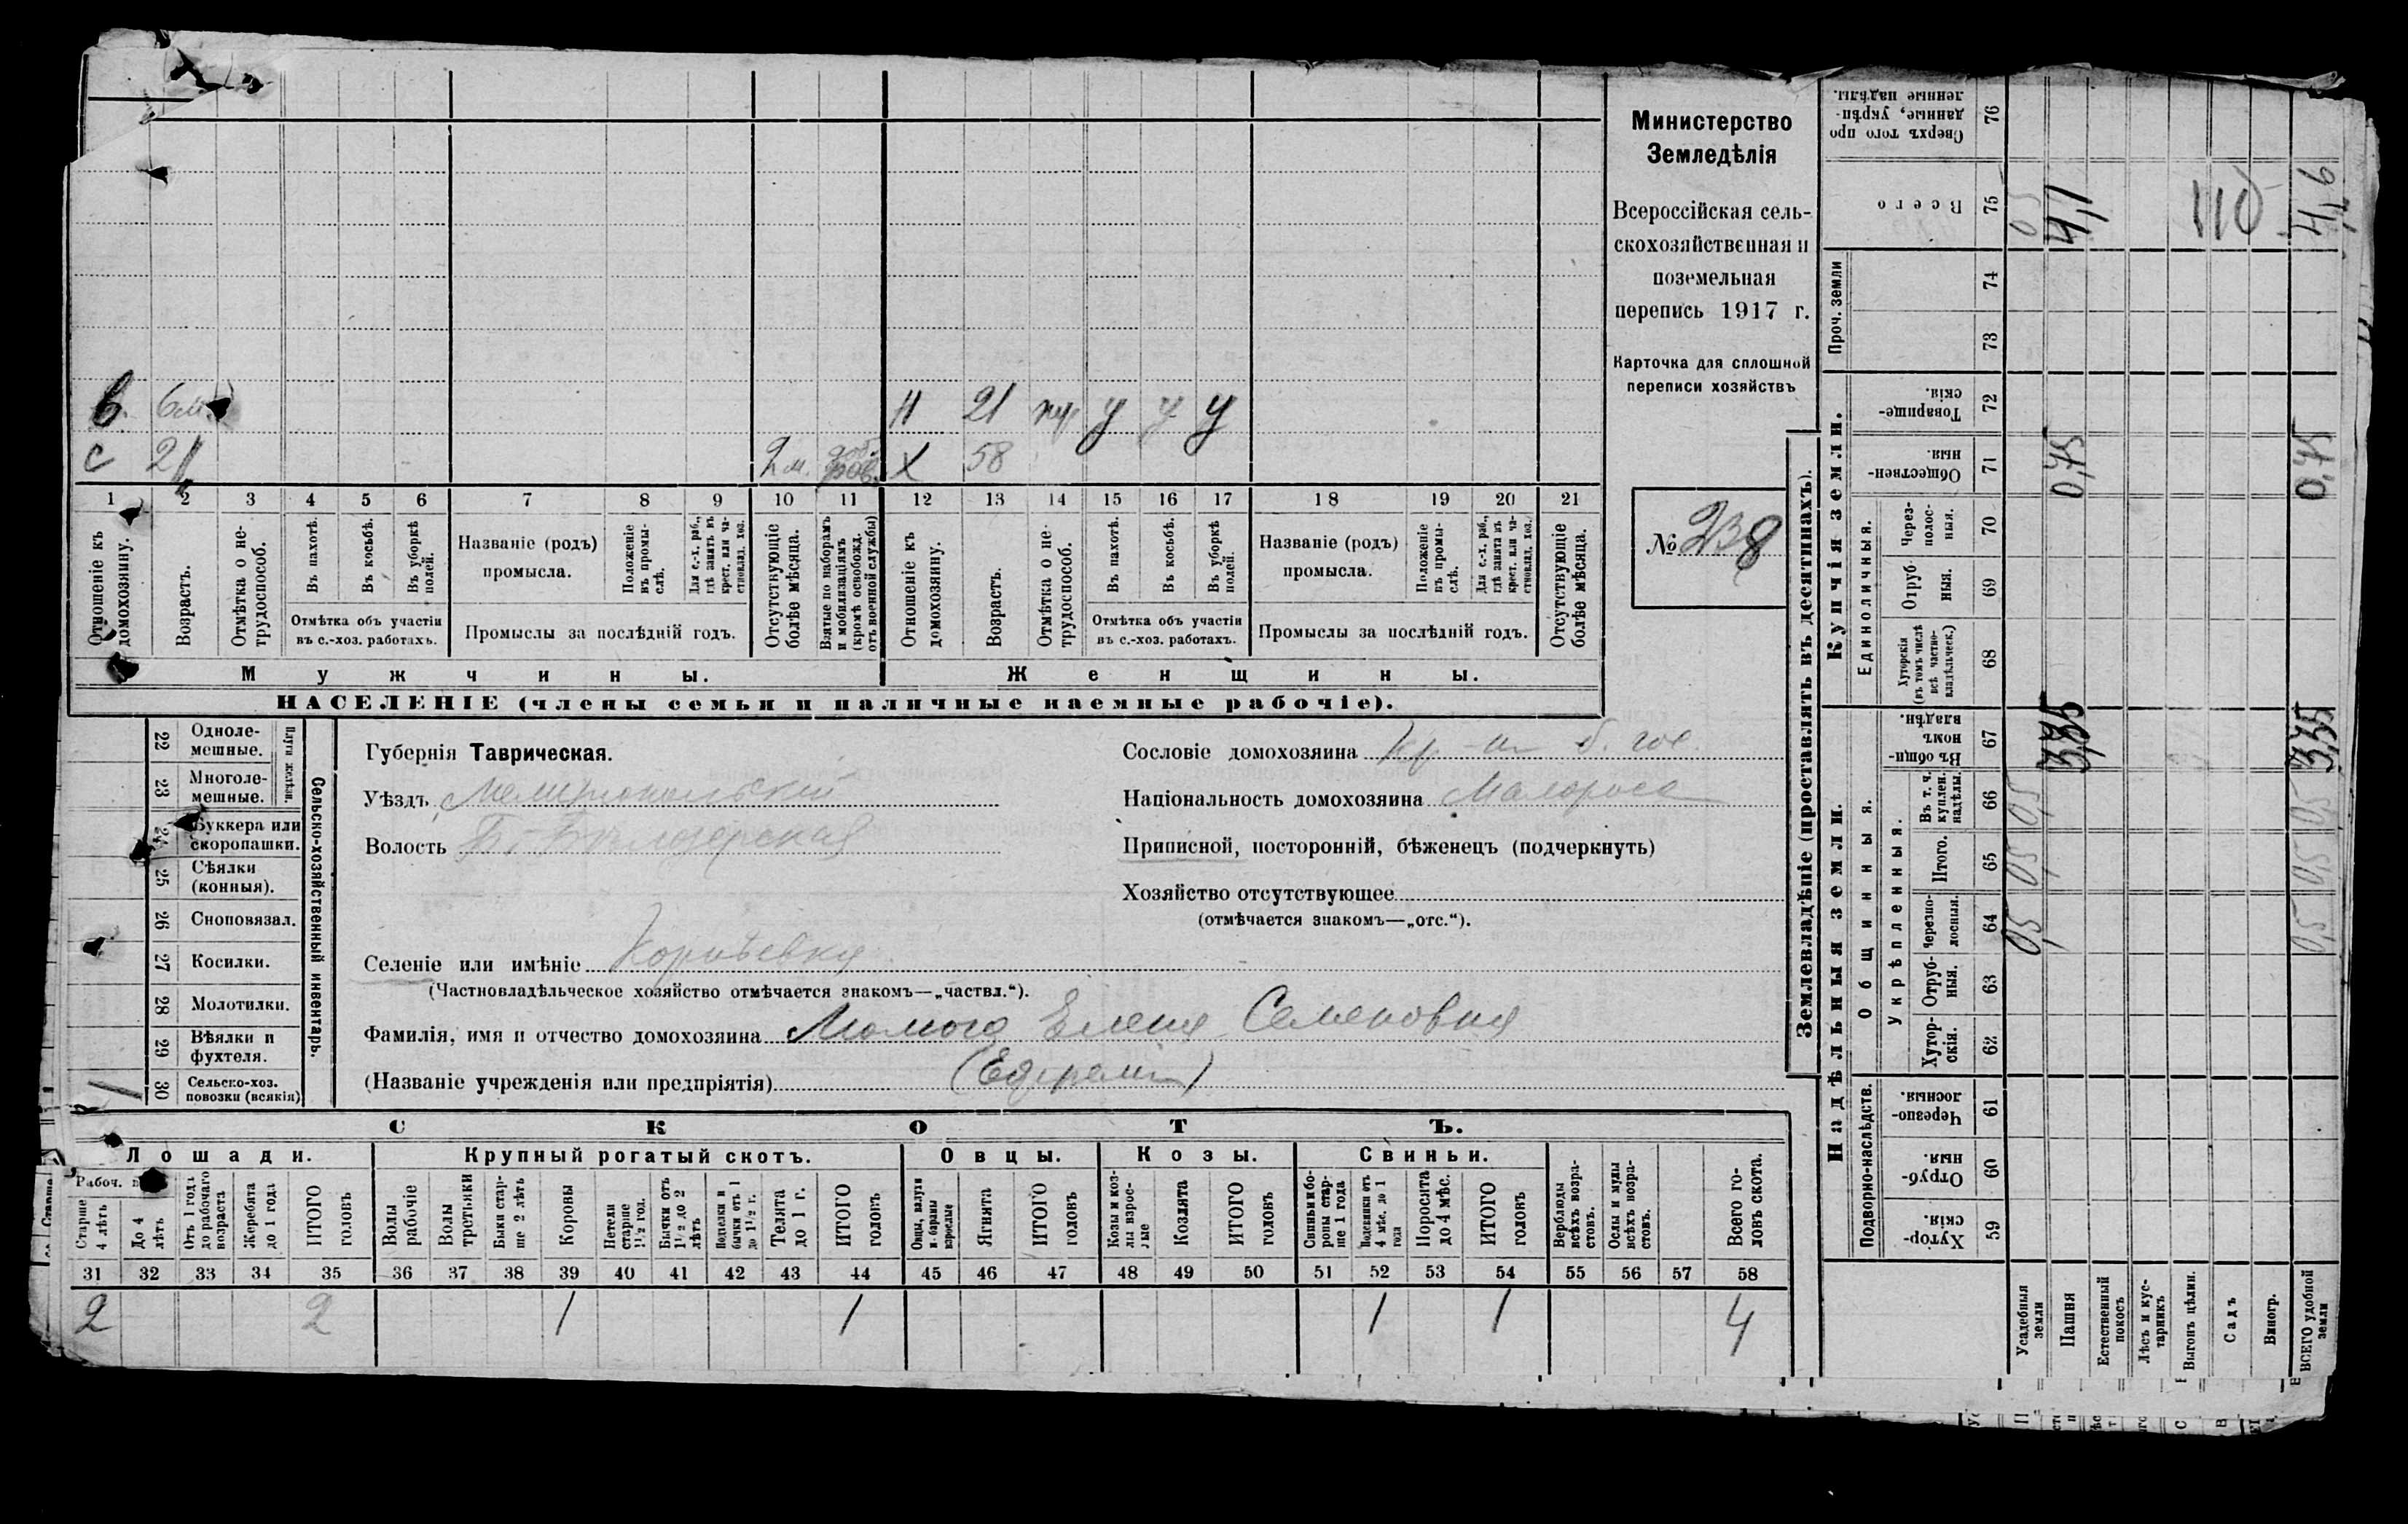 в. 6 м.
Н 21 у у у
С 21
2 м. доб.
Х 58
1 2 3 4 5 6 7 8 9 10 11 12 13 14 15 16 17 18 19 20 21
Отношеніе къ домохозяину.
Возрастъ.
Отмѣтка о не-трудоспособ.
Въ пахотѣ.
Въ косьбѣ.
Въ уборкѣ полей.
Отмѣтка объ участіи
въ с.-хоз. работахъ.
Названіе (родъ)
промысла.
Положеніе въ промы-слѣ.
Для с.-х. раб., гдѣ занятъ въ крест. или ча-стновлад. хоз.
Промыслы за послѣдній годъ.
Отсутствующіе болѣе мѣсяца.
Взятые по наборамъ и мобилизаціямъ (кромѣ освобожд. отъ военной службы)
Отношеніе къ домохозяину.
Возрастъ.
Отмѣтка о не-трудоспособ.
Въ пахотѣ.
Въ косьбѣ.
Въ уборкѣ полей.
Отмѣтка объ участіи
въ с.-хоз. работахъ.
Названіе (родъ)
промысла.
Положеніе въ промы-слѣ.
Для с.-х. раб., гдѣ занята въ крест. или ча-стновлад. хоз.
Промыслы за послѣдній годъ.
Отсутствующіе болѣе мѣсяца.
Мужчины.
Женщины.
НАСЕЛЕНІЕ (члены семьи и наличные наемные рабочіе).
Министерство
Земледѣлія
Всероссійская сель-
скохозяйственная и
поземельная
перепись 1917 г.
Карточка для сплошной
переписи хозяйствъ
№ 238
22 Одноле-
мешные.
23 Многоле-
мешные.
Плуги желѣзн.
24 Буккера или
скоропашки.
25 Сѣялки
(конныя).
26 Сноповязал.
27 Косилки.
28 Молотилки.
29 Вѣялки и
фухтеля.
1 30 Сельско-хоз.
повозки (всякія)
Сельско-хозяйственный инвентарь.
Губернія Таврическая.
Уѣздъ Мелитопольскій
Волость
Сословіе домохозяина кр-
Національность домохозяина Малоросс
Приписной, посторонній, бѣженецъ (подчеркнуть)
Хозяйство отсутствующее
(отмѣчается знакомъ—„отс.“).
Селеніе или имѣніе
(Частновладѣльческое хозяйство отмѣчается знакомъ—„частвл.“).
Фамилія, имя и отчество домохозяина Елена Семеновна
(Названіе учрежденія или предпріятія)
СКОТЪ.
Лошади.
Крупный рогатый скотъ.
Овцы.
Козы.
Свиньи.
Рабоч.
Старше 4 лѣтъ
До 4 лѣтъ
Отъ 1 года до рабочаго возраста
Жеребята до 1 года
ИТОГО головъ
Волы рабочіе
Волы третьяки
Быки стар-ше 2 лѣтъ
Коровы
Нетели старше 1½ год.
Бычки отъ 1½ до 2 лѣтъ
Подтелки и бычки отъ 1 до 1½ г.
Телята до 1 г.
ИТОГО головъ
Овцы, валухи и бараны взрослые
Ягнята
ИТОГО головъ
Козы и коз-лы взрос-лые
Козлята
ИТОГО головъ
Свиньи и бо-ровы стар-ше 1 года
Подсвинки отъ 4 мѣс. до 1 года
Поросята до 4 мѣс.
ИТОГО головъ
Верблюды всѣхъ возра-стовъ.
Ослы и мулы всѣхъ возра-стовъ.
Всего го-ловъ скота.
31 32 33 34 35 36 37 38 39 40 41 42 43 44 45 46 47 48 49 50 51 52 53 54 55 56 57 58
2 2 1 1 1 1 4
Землевладѣніе (проставлять въ десятинахъ).
Надѣльныя земли.
Купчія земли.
Проч. земли
Подворно-наслѣдств.
Общинныя.
Укрѣпленныя.
Единоличныя.
Хутор-скія. 59
Отруб-ныя. 60
Черезпо-лосныя. 61
Хутор-скія. 62
Отруб-ныя. 63
Черезпо-лосныя. 64
Итого. 65
Въ т. ч. куплен. надѣлы. 66
Въ общи-номъ владѣн. 67
Хуторскія (въ томъ числѣ всѣ частно-владѣльческ.) 68
Отруб-ныя. 69
Черезпо-лос-ныя. 70
Обществен-ныя. 71
Товарище-скія. 72
73
74
Всего 75
Сверхъ того про-данные, укрѣп-ленные надѣлы. 76
Усадебныя земли
Пашня 3,35 0,75 4,1
Естественный покосъ
Лѣсъ и кус-тарникъ
Выгонъ цѣлин.
Садъ
Виногр.
ВСЕГО удобной земли 3,35 0,75 4,6